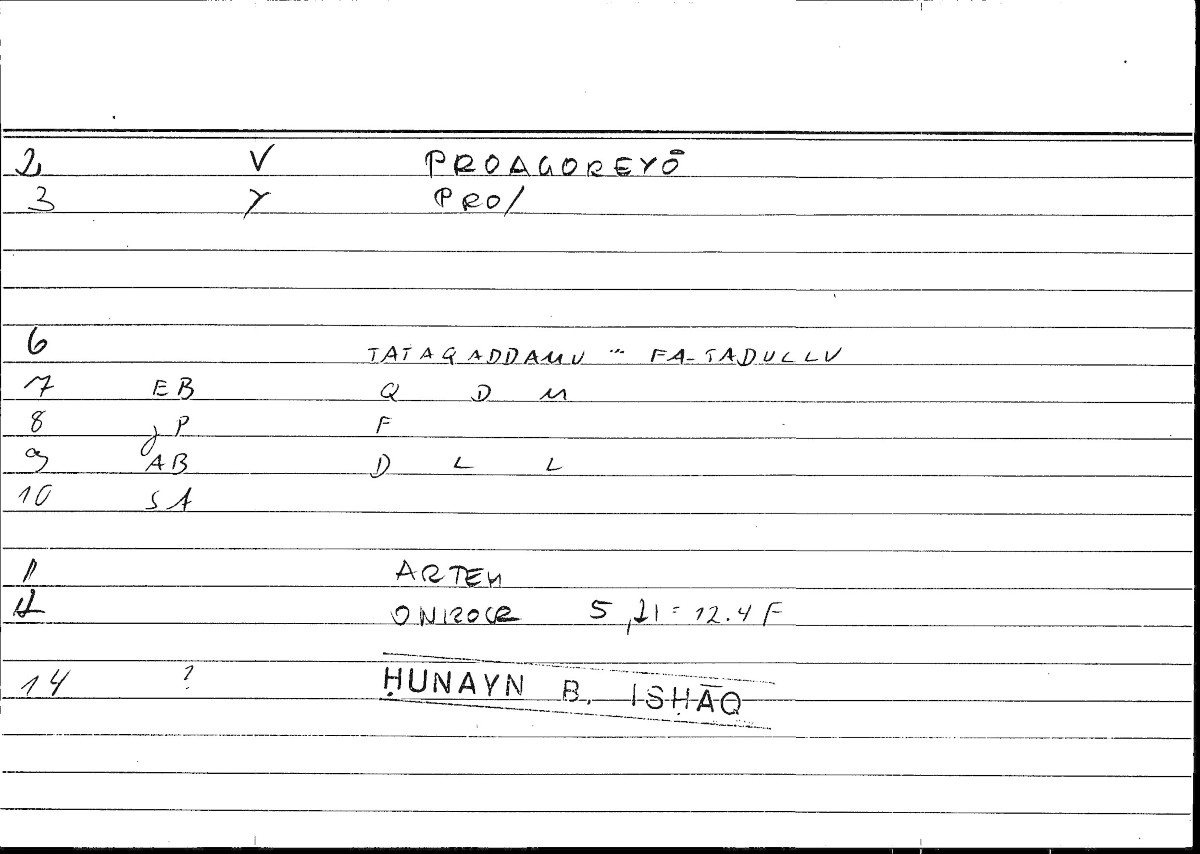 2 V PROAGOREYŌ
3 Y PRO/
6 TATAQADDAMU ... FA-TADULLU
7 EB Q D M
8 JP F
9 AB D L L
10 SA
11 ARTEM
12 ONIROCR 5,21 = 12.4 F
14 ? ḤUNAYN B. ISḤĀQ